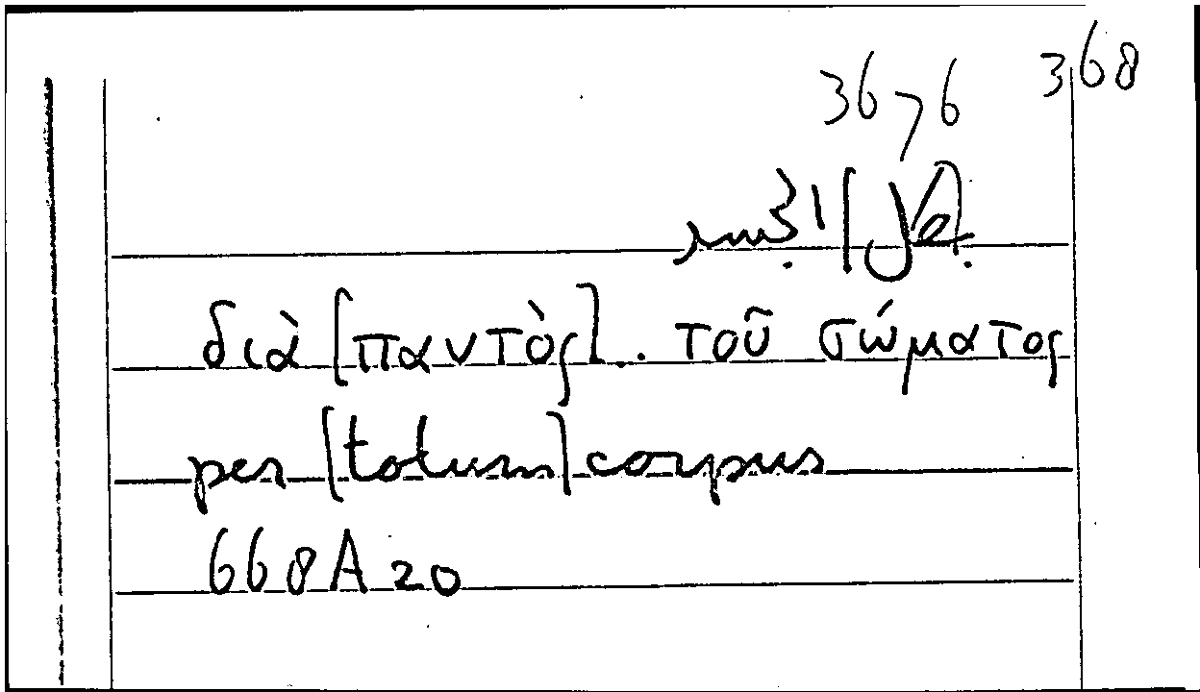 368
3676
διὰ [παντὸς]. τοῦ σώματος
per [totum] corpus
668A20